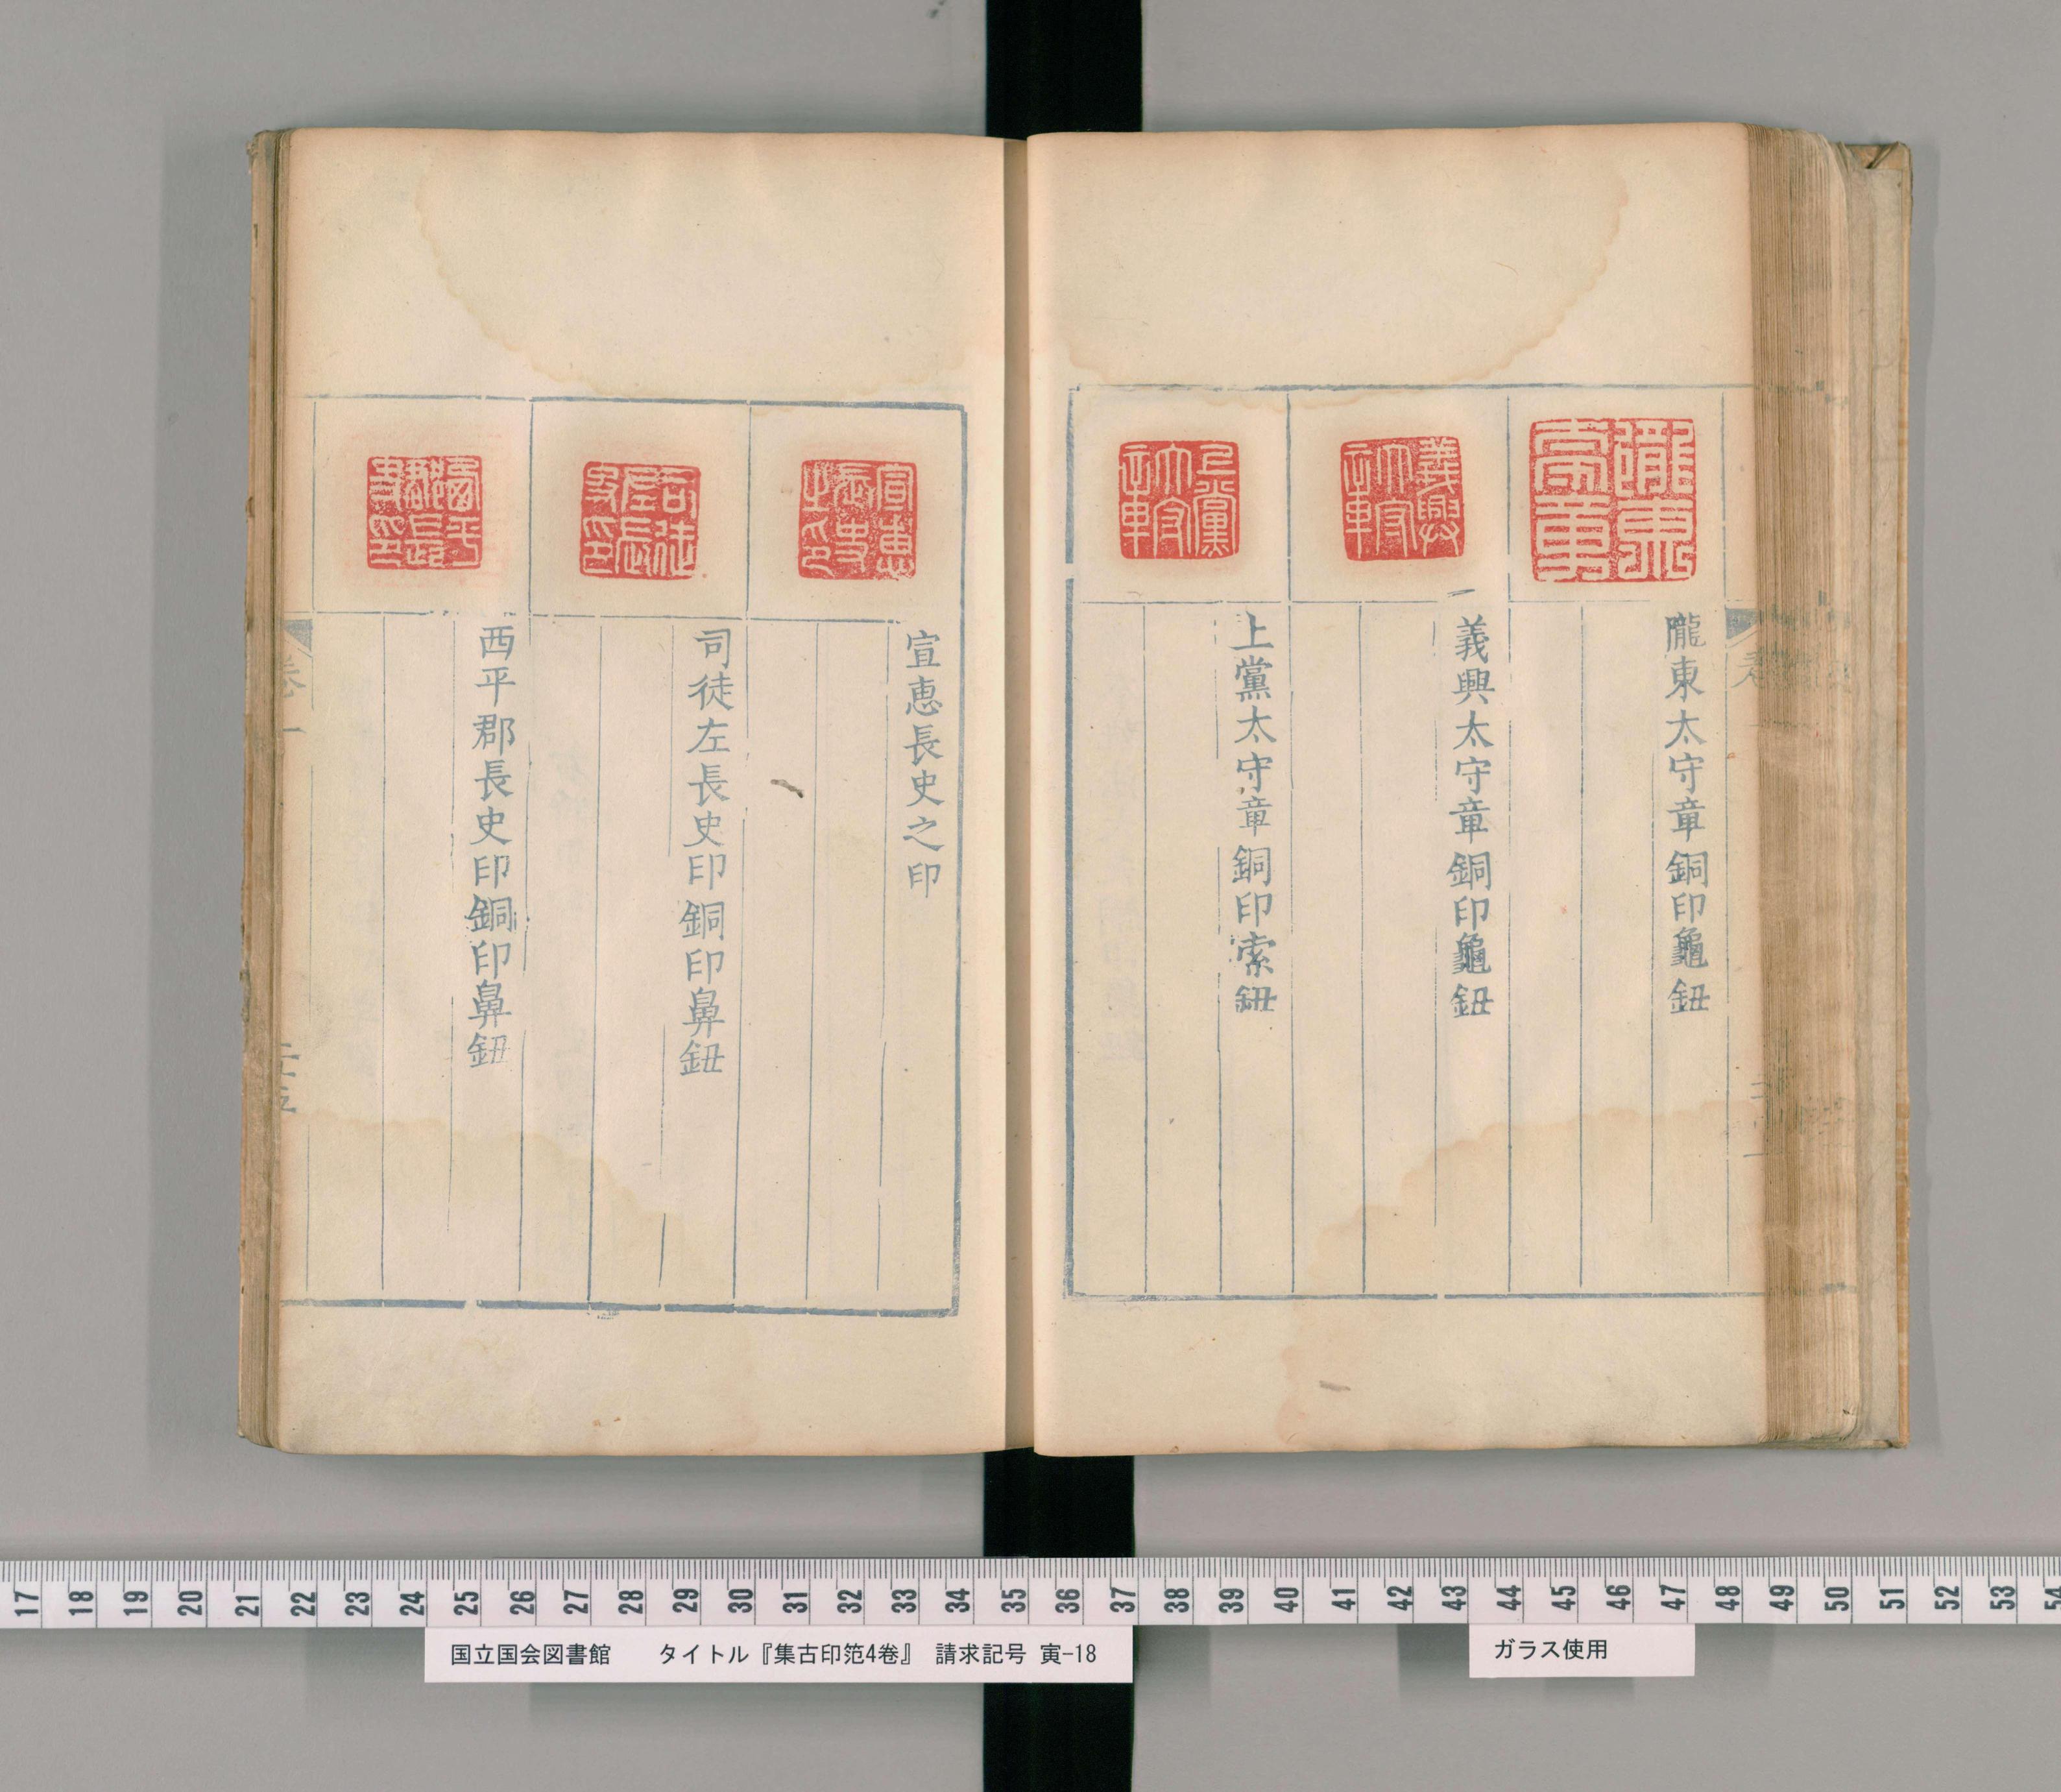 隴東太守章銅印龜鈕
義興太守章銅印龜鈕
上黨太守章銅印索鈕
宣惠長史之印
司徒左長史印銅印鼻鈕
西平郡長史印銅印鼻鈕
卷一
義興太守章
上黨太守章
宣惠長史之印
司徒左長史印
西平郡長史印
17 18 19 20 21 22 23 24 25 26 27 28 29 30 31 32 33 34 35 36 37 38 39 40 41 42 43 44 45 46 47 48 49 50 51 52 53 54
国立国会図書館 タイトル『集古印笵4巻』 請求記号 寅-18
ガラス使用